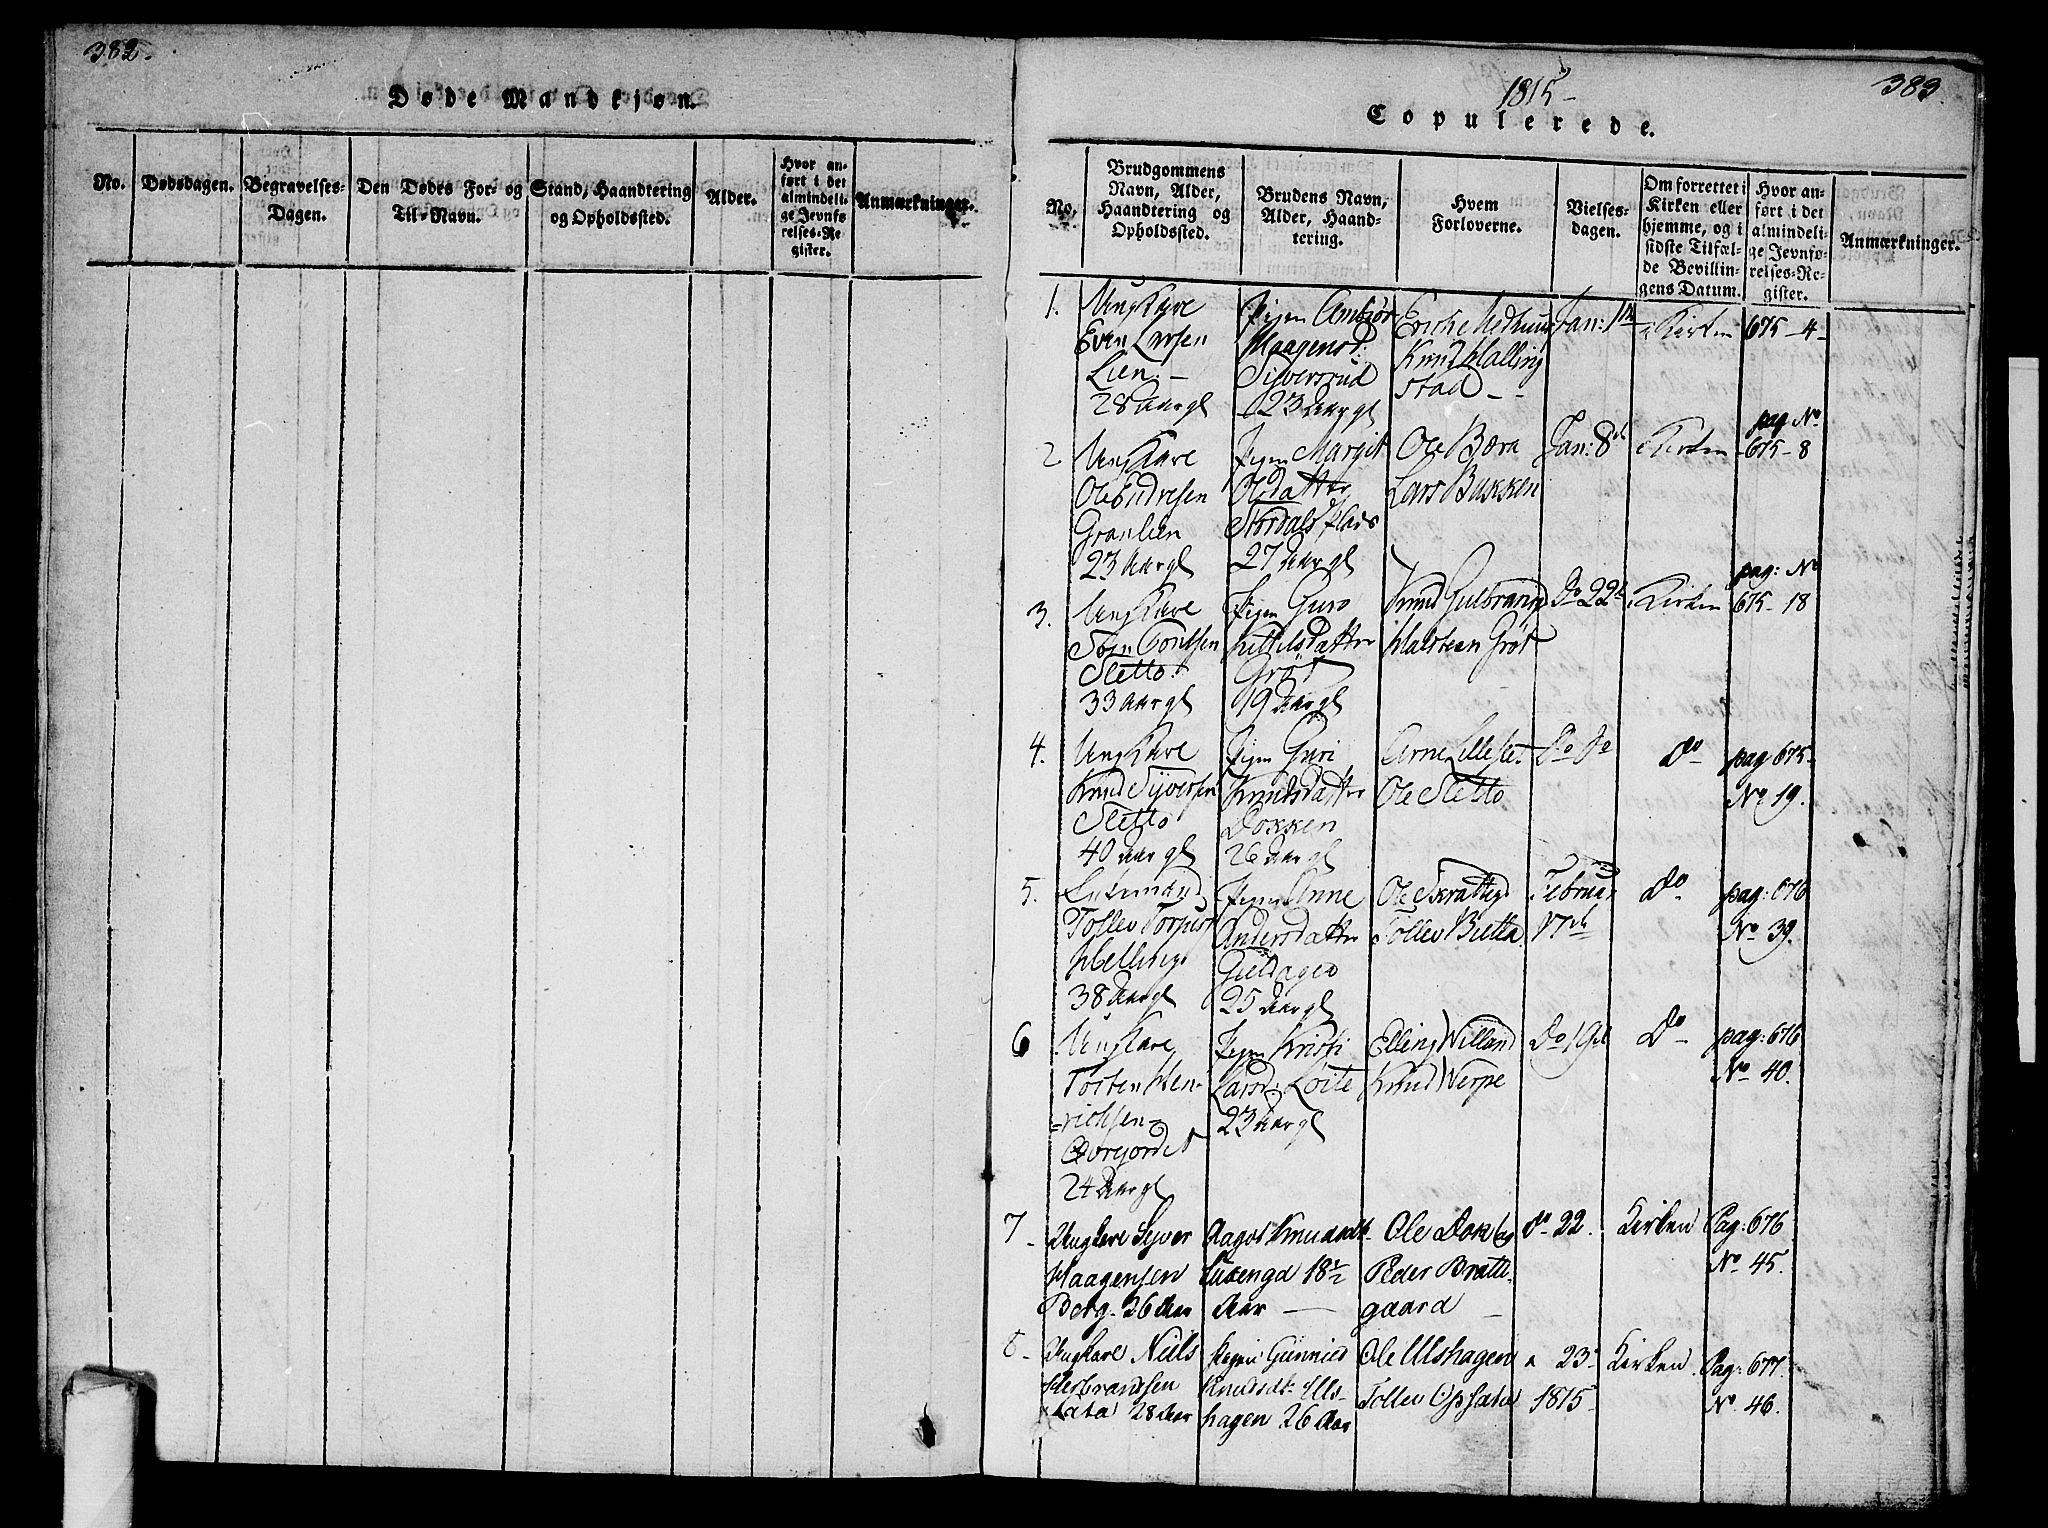 382.
Døde Mandkjøn.
No.
Dødsdagen.
Begravelses-
Dagen.
Den Dødes For- og
Til-Navn.
Stand, Haandtering
og Opholdssted.
Alder.
Hvor an-
ført i det
almindeli-
ge Jevnfø
relses-Re
gister.
Anmærkninger.
1815
383.
Copulerede.
No.
Brudgommens
Navn, Alder,
Haandtering og
Opholdssted.
Brudens Navn,
Alder, Haand-
tering.
Hvem
Forloverne.
Vielses-
dagen.
Om forrettet i
Kirken eller
hjemme, og i
sidste Tilfæl-
de Bevillin-
gens Datum.
Hvor an-
ført i det
almindeli-
ge Jevnfø-
relses-Re-
gister.
Anmærkninger.
1.
Ungkare
Even Larsen
Lien. -
28 Aar gl
Pigen Ambiør
Haagensd:
Sijversrud
23 Aar gl
Knud Halling
stad - -
Jan: 1
i Kirken
675-4-
2
Ungkare
Ole
Granlien
23 Aar gl
Pigen Margit
Olsdatter
Stordals Plads
27 Aar gl
Ole Bæra
Lars Bakken
Jan: 8de
i Kirken
pag No
675-8
3.
Ungkare
Sletto.
33 Aar gl
Pigen Guro
Kittelsdatter
Grøt
19 Aar gl
Knud Gulbrand
Halsteen Grøt
Do 22
i Kirken
pag: No
675-18
4.
Ungkare
Knud Sijversen
Sletto
40 Aar gl
Pigen Guri
Knudsdatter
Dokken
26 Aar gl
Arne
Ole Sletto
Do Do
Do
pag 675-
No 19.
5.
Enkemand
Tollev
Hellings
38 Aar gl
Pigen Anne
Andersdatter
25 Aar gl
Ole
Tollev
Februar
17de
Do
pag: 676
No 39.
6
Ungkare
Tosten Hen-
=richsen
24 Aar gl
Pigen Kristi
Larsd: Loite
23 Aar gl
Elling Villand
Knud Verpe
Do 19de
Do
pag: 676
No 40.
7
Ungkare Sejver
Haagensen
Berg 26 Aar
Aagot Knudsdt.
18½
Aar
Ole Dok og
Peder Bratte-
gaard
do 22.
Kirken
Pag: 676
No 45.
8
Ungkare Niels
Herbrandsen
28 Aar
Pigen Gunnild
Knudsdt. Uls-
hagen 26 Aar
Ole Ulshagen
Tollev Opsata
23
1815
Kirken
Pag: 677
No 46.